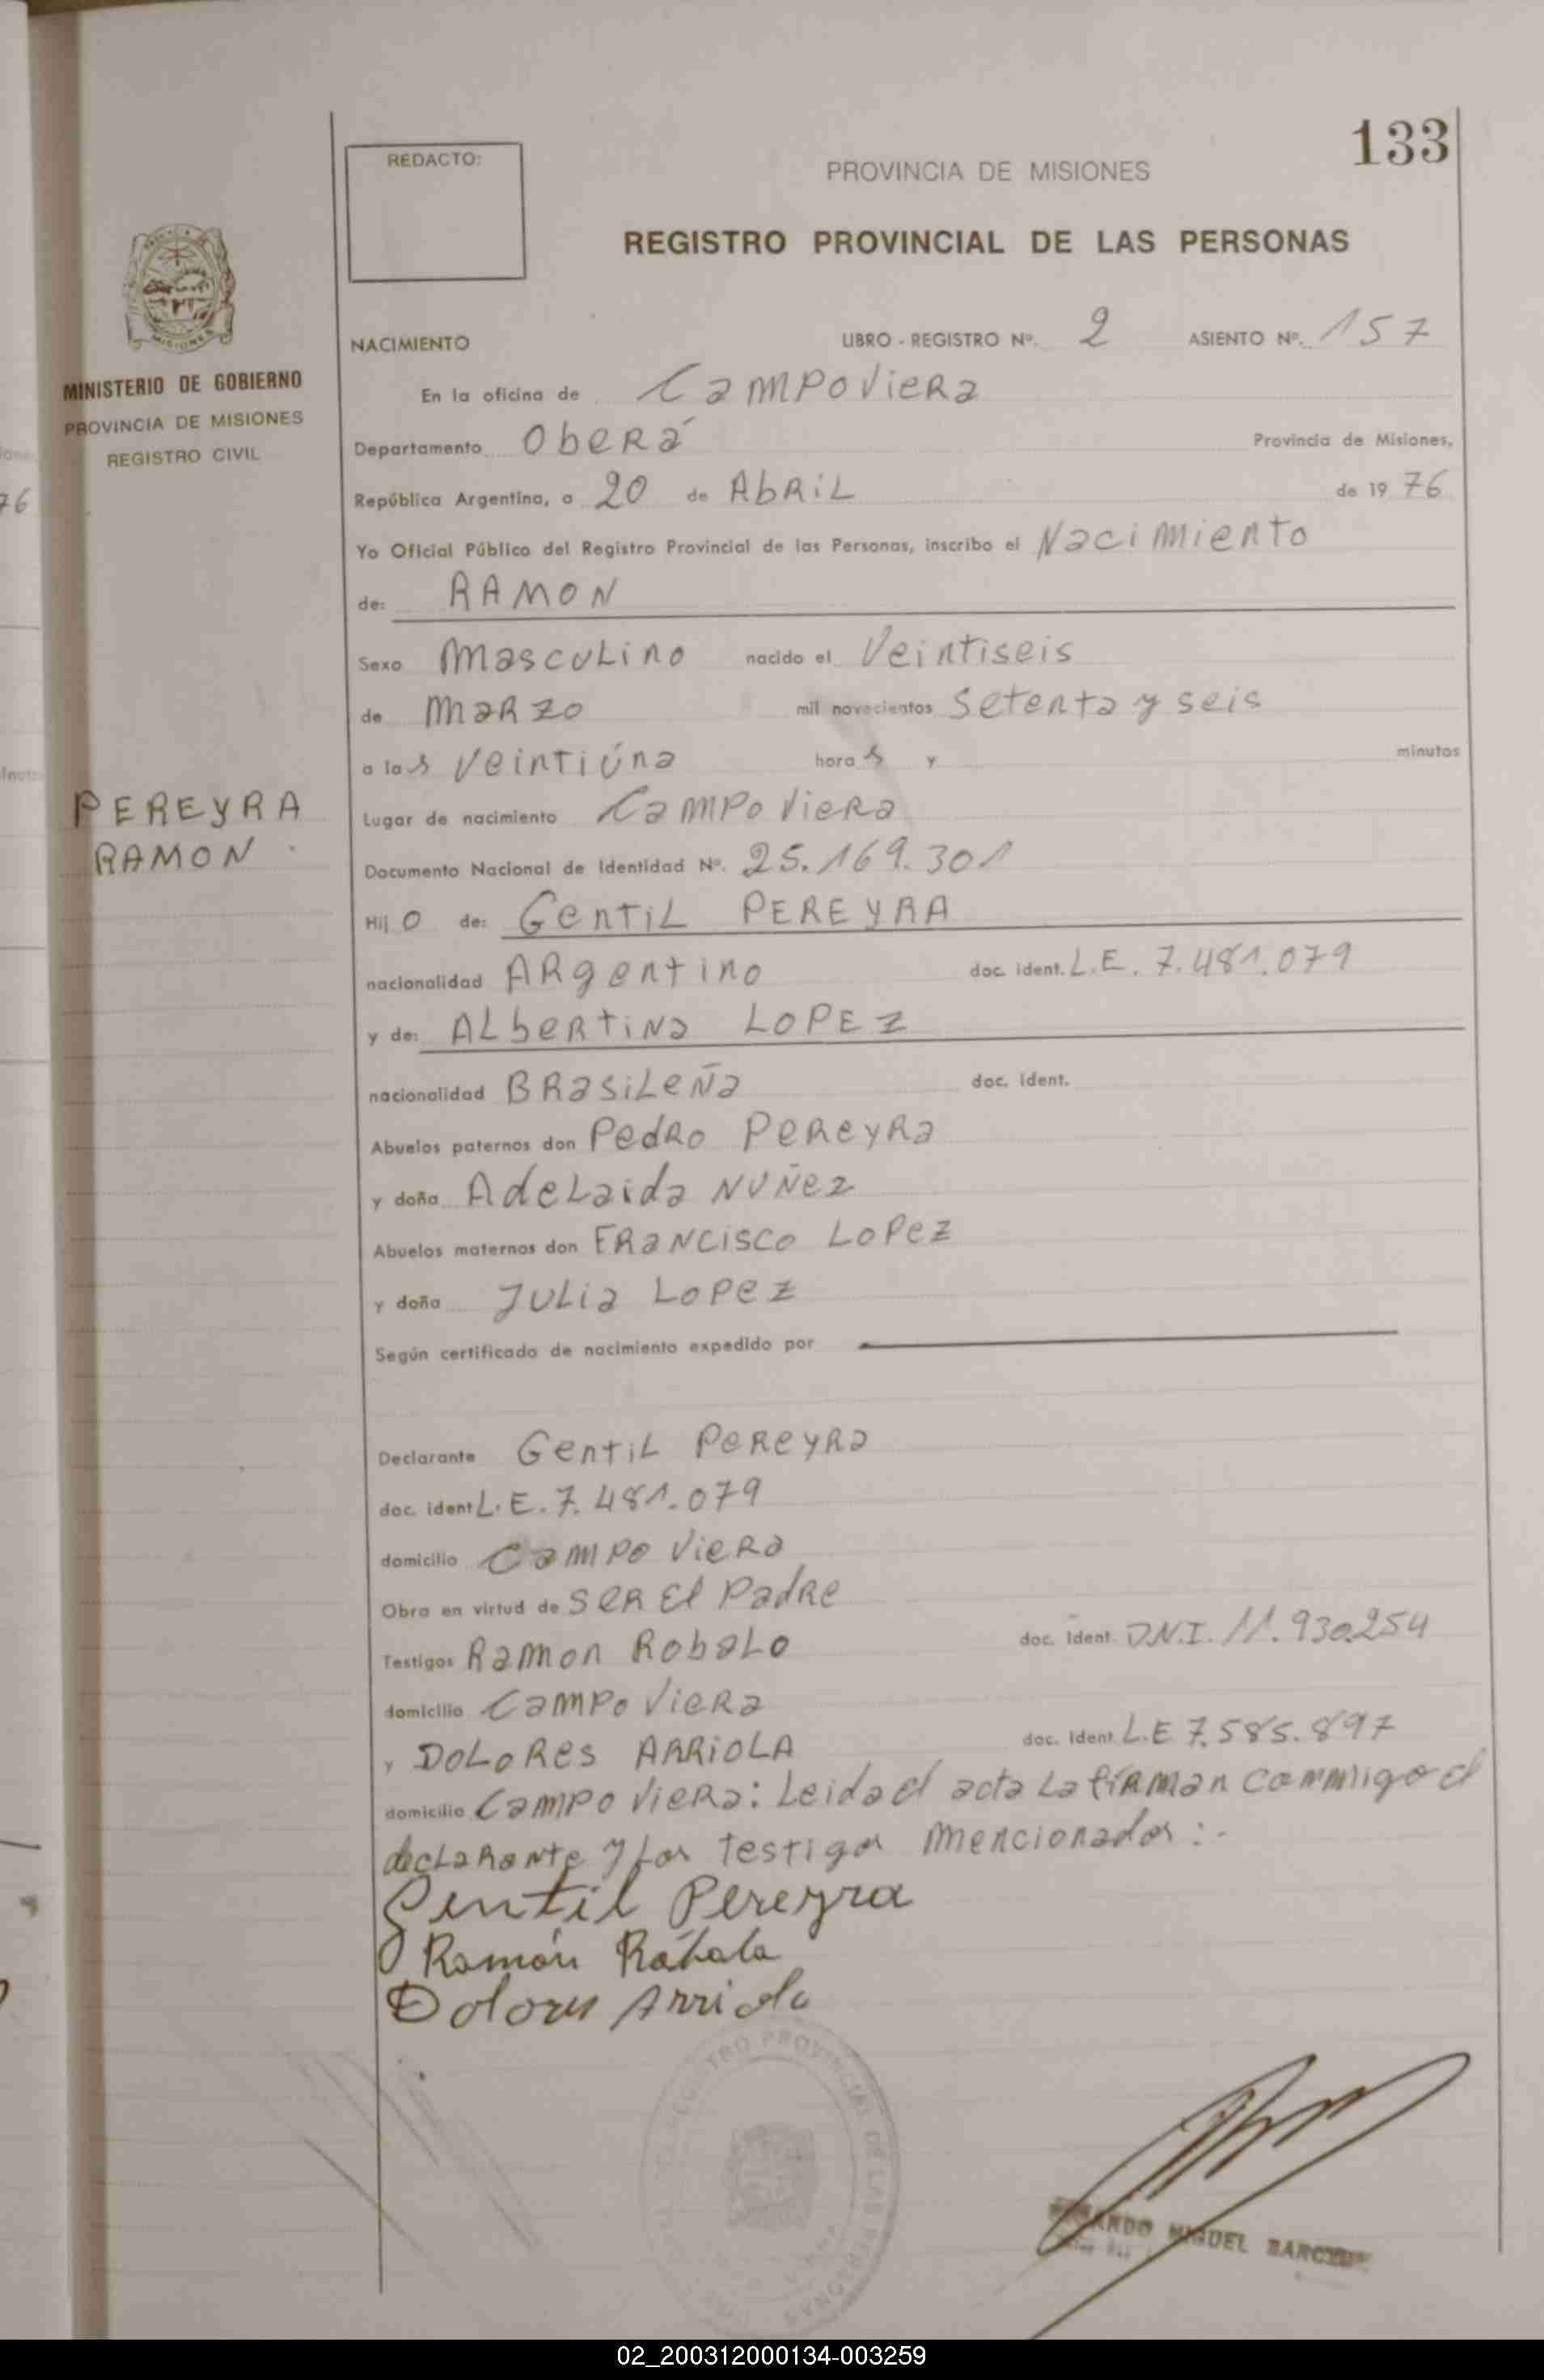 133
REDACTO:
PROVINCIA DE MISIONES
REGISTRO PROVINCIAL DE LAS PERSONAS
MISIONES
MINISTERIO DE GOBIERNO
PROVINCIA DE MISIONES
REGISTRO CIVIL
76
NACIMIENTO LIBRO - REGISTRO Nº. 2 ASIENTO Nº. 157
En la oficina de Campo Viera
Departamento Oberá Provincia de Misiones,
República Argentina, a 20 de Abril de 19 76
Yo Oficial Público del Registro Provincial de las Personas, inscribo el Nacimiento
de: RAMON
Sexo Masculino nacido el Veintiseis
de Marzo mil novecientos Setenta y seis
a las Veintiúna horas y minutos
PEREYRA
RAMON
Lugar de nacimiento Campo Viera
Documento Nacional de Identidad Nº. 25.169.301
Hijo de: Gentil PEREYRA
nacionalidad Argentino doc. ident. L.E. 7.481.079
y de: Albertina LOPEZ
nacionalidad Brasileña doc. ident.
Abuelos paternos don Pedro Pereyra
y doña Adelaida Nuñez
Abuelos maternos don Francisco Lopez
y doña Julia Lopez
Según certificado de nacimiento expedido por
Declarante Gentil Pereyra
doc. ident L.E. 7.481.079
domicilio Campo Viera
Obra en virtud de Ser El Padre
Testigos Ramon Robalo doc. ident. D.N.I. 11.930.254
domicilio Campo Viera
y DOLORES ARRIOLA doc. ident. L.E 7.585.897
domicilio Campo Viera: Leida el acta la firman commigo el
declarante y los testigos mencionados:.-
Gentil Pereyra
Ramón
Dolores Arriola
REGISTRO PROVINCIAL DE LAS PERSONAS
MIGUEL
02_200312000134-003259